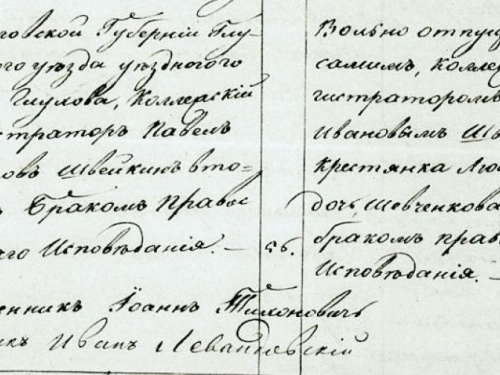 говской Губернии Глу-
ого уезда уездного
Глухова, Коллежскій
стратор Павел
ов Швейкин вто-
Браком Правос
аго Исповѣданія. —
26.
енник Іоанн Тимонович
ик Иван Левайковскій
Вольно отпущ
самим, Коллеж
гистратором
Ивановым Ш
крестянка
дочь Шевченкова
браком прав
Исповѣданія. —